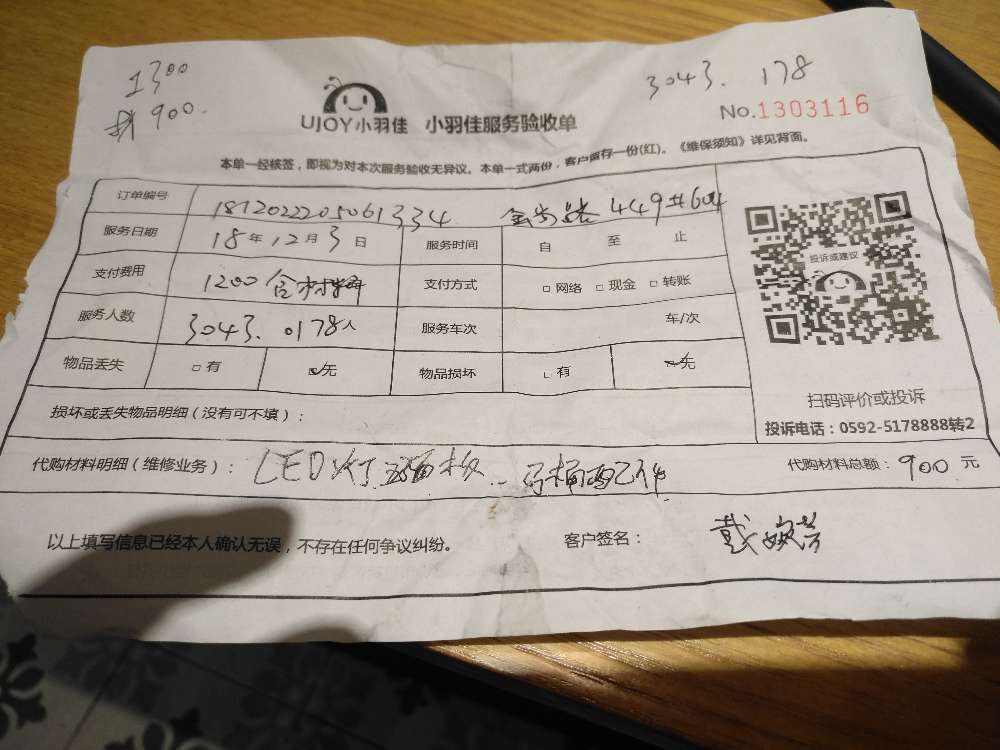 1300
900.
3043. 178
UJOY小羽佳 小羽佳服务验收单
No.1303116
本单一经核签，即视为对本次服务验收无异议。本单一式两份，客户留存一份(红)。《维保须知》详见背面。
订单编号 1812022205061334 449#604
服务日期 18年12月3日 服务时间 自 至 止
支付费用 1200含材料 支付方式 □网络 □现金 □转账
服务人数 3043.0178人 服务车次 车/次
物品丢失 □有 ☑无 物品损坏 □有 ☑无
损坏或丢失物品明细（没有可不填）：
投诉或建议
扫码评价或投诉
投诉电话：0592-5178888转2
代购材料明细（维修业务）：LED灯 面板 马桶配件
代购材料总额：900元
以上填写信息已经本人确认无误，不存在任何争议纠纷。
客户签名：戴婉芳